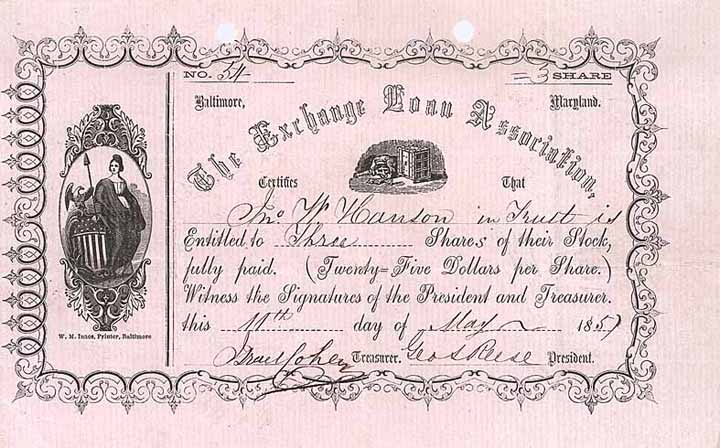 NO. 54 = 3 SHARE
Baltimore, Maryland.
The Exchange Loan Association,
Certifies That
Jno. W. Hanson in Trust is
Entitled to Three Shares of their Stock,
fully paid. (Twenty=Five Dollars per Share.)
Witness the Signatures of the President and Treasurer.
this 11th day of May 1857
Israel Cohen Treasurer. Geo S Reese President.
W. M. Innes, Printer, Baltimore